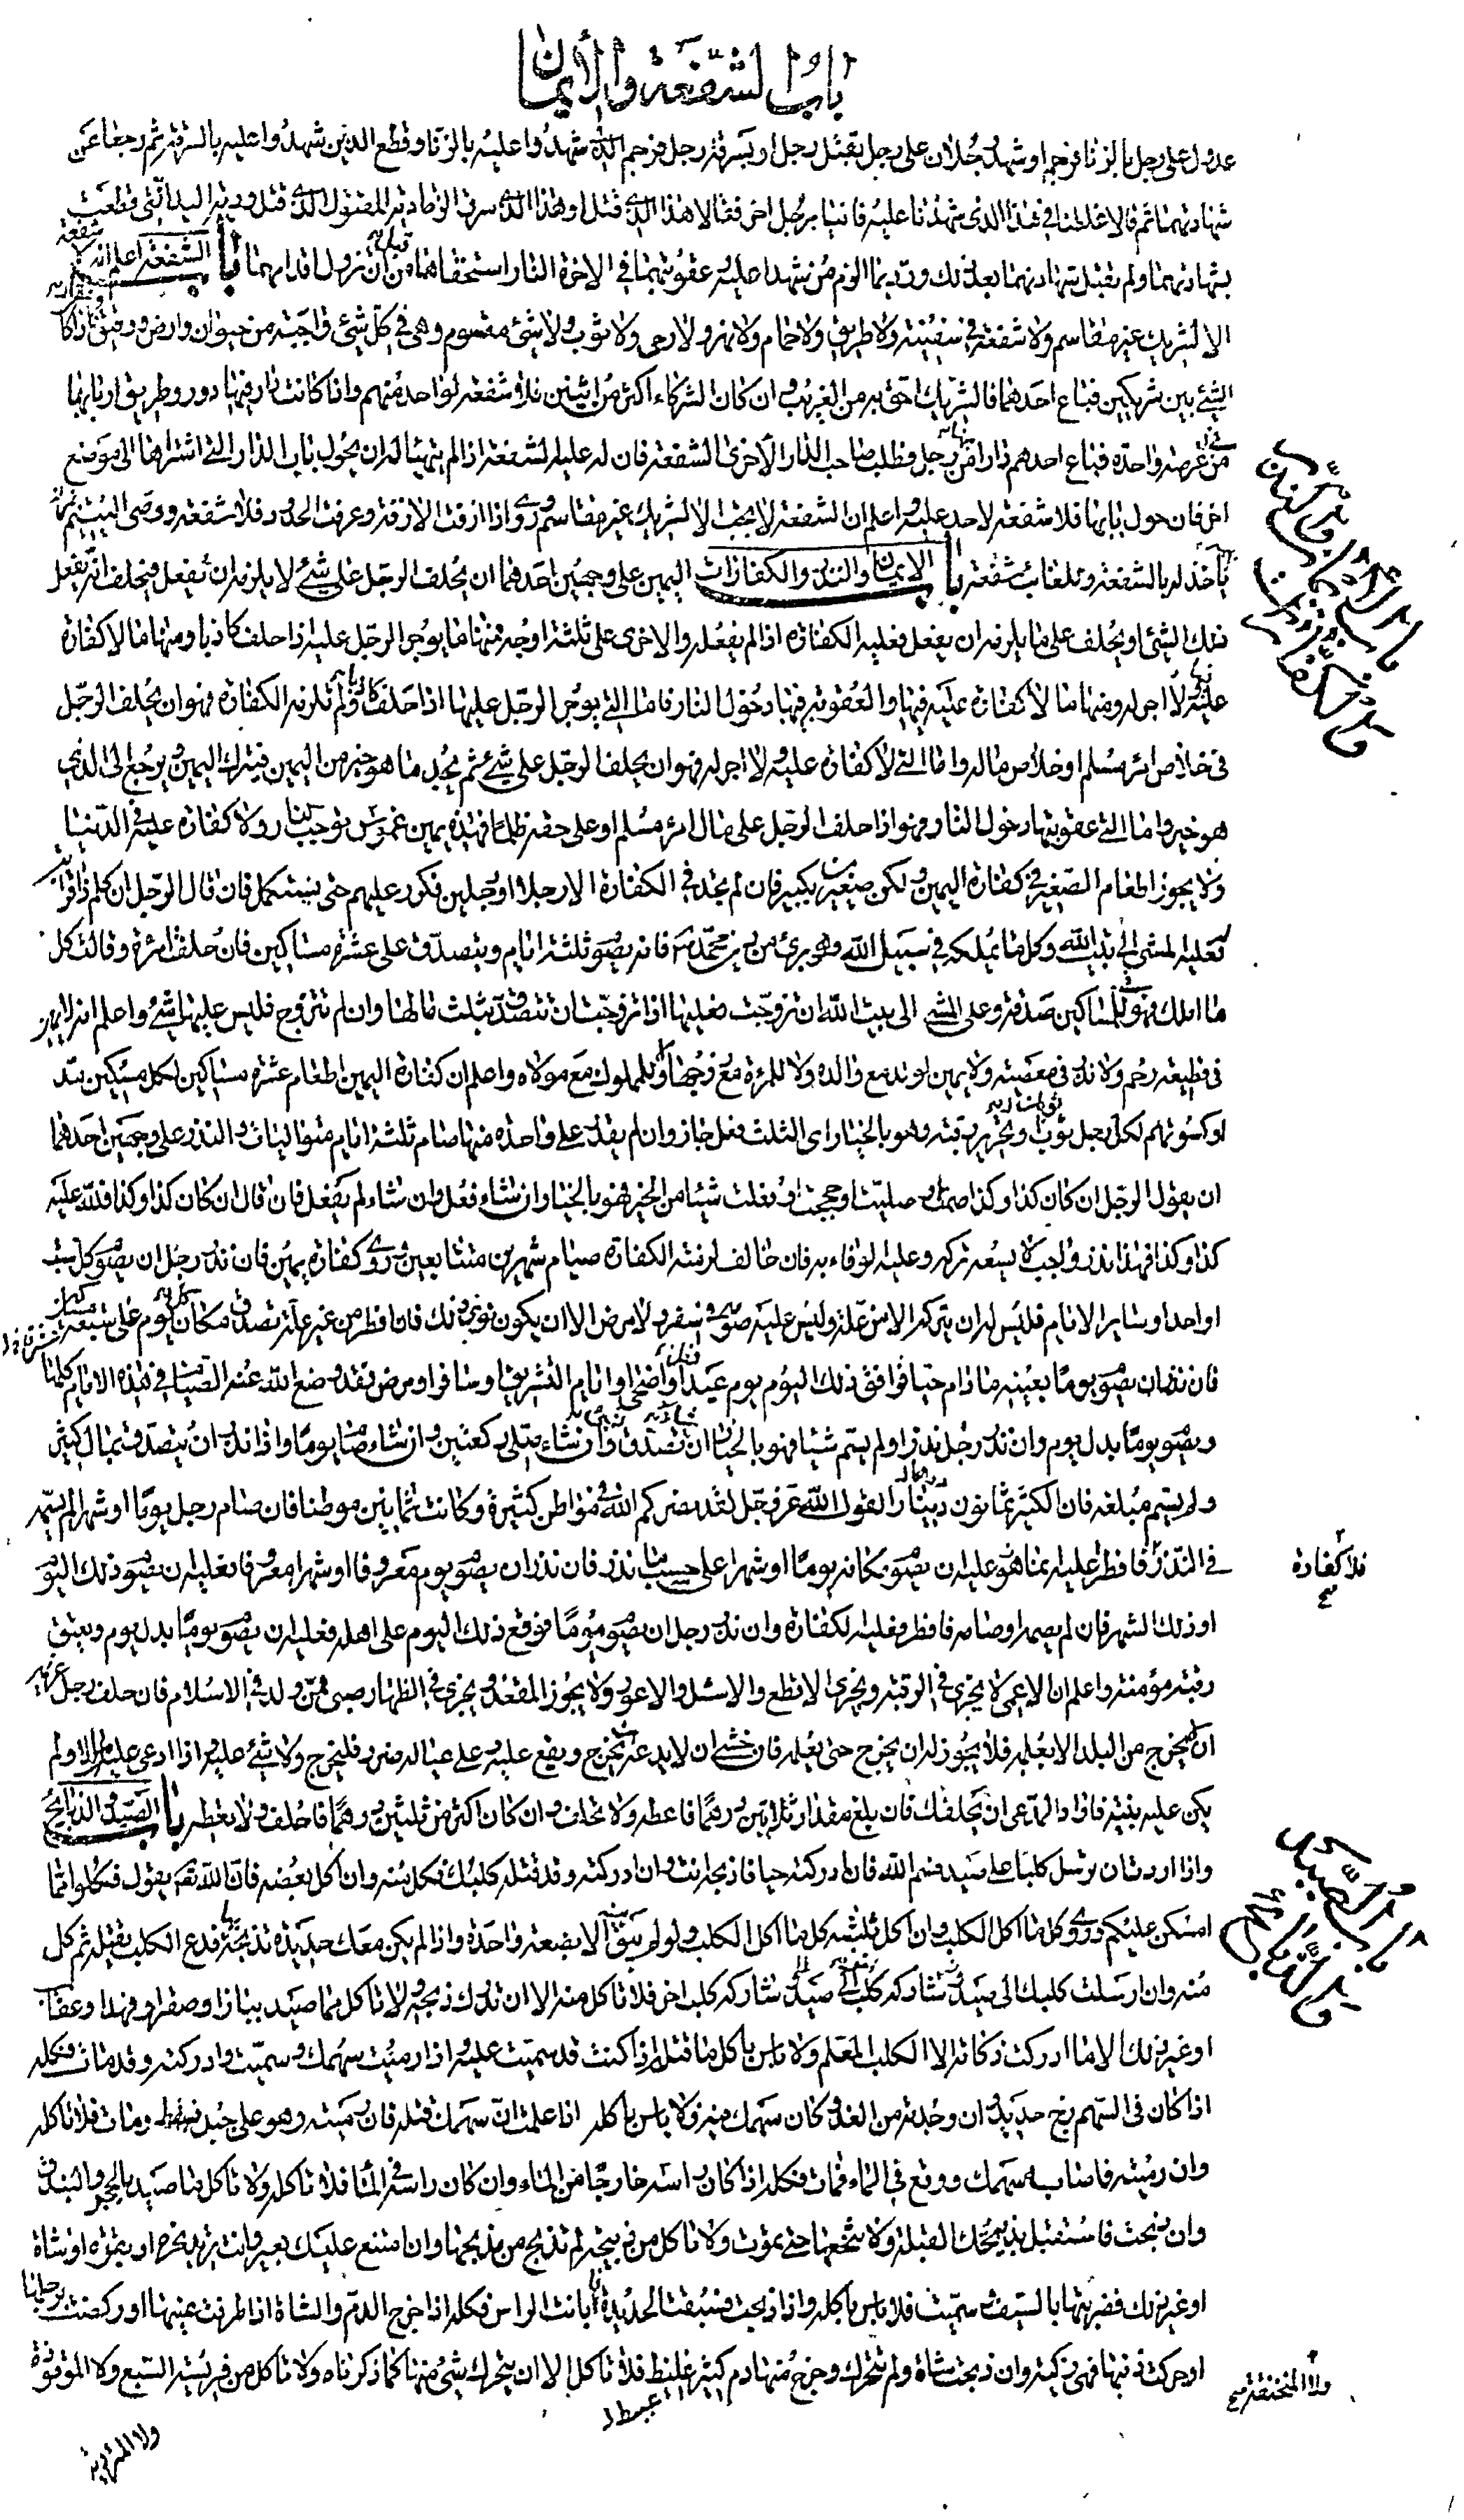 باب الشفعة والأيمان
عدول على رجل بالزنا فرجم او شهد رجلان على رجل بقتل رجل او بسرقة رجل فرجم الذى شهدوا عليه بالزنا وقطع الذين شهدوا عليه بالسرقة ثم رجعا عن
شهادتهما ثم قالا غلطنا فى هذا الذى شهدنا عليه فاتيا برجل اخر فقالا هذا الذى قتل او هذا الذى سرق الزما دية المقتول الذى قتل ودية اليد التى قطعت
بشهادتهما ولم يقبل شهادتهما بعد ذلك وردتهما الزم من شهدا عليه عقوبتهما فى الاخرة النار استحقاها من قبل ان تزول اقدامهما باب الشفعة اعلم انه لا شفعة
الا لشريك غير مقاسم ولا شفعة فى سفينة ولا طريق ولا حمام ولا نهر ولا رحى ولا ثوب ولا شئ مقسوم وهى فى كل شئ واجبة من حيوان وارض ورقيق اذا كان
الشئ بين شريكين فباع احدهما فالشريك احق به من الغريب وان كان الشركاء اكثر من اثنين فلا شفعة لواحد منهم واذا كانت دار فيها دور وطريق اربابها
فى عرصة واحدة فباع احدهم دارا من رجل فطلب صاحب الدار الاخرى الشفعة فان له عليه الشفعة اذا لم يتهيأ له ان يحول باب الدار التى اشتراها الى موضع
اخر فان حول بابها فلا شفعة لاحد عليه واعلم ان الشفعة لا يجب الا لشريك غير مقاسم وروى واذا ارفت الارفة وعرفت الحدود فلا شفعة ووصى اليتيم بمنزلة
ياخذ له بالشفعة وللغائب شفعة باب الايمان والنذر والكفارات اليمين على وجهين احدهما ان يحلف الرجل على شئ لا يلزمه ان يفعل فيحلف انه يفعل
ذلك الشئ او يحلف على ما يلزمه ان يفعل فعليه الكفارة اذا لم يفعله والاخرى على ثلثة اوجه فمنها ما يوجر الرجل عليه اذا حلف كاذبا ومنها ما لا كفارة
عليه ولا اجر له ومنها ما لا كفارة عليه فيها والعقوبة فيها دخول النار فاما التى يوجر الرجل عليها اذا حلف كاذبا ولم تلزمه الكفارة فهو ان يحلف الرجل
فى خلاص امرء مسلم او خلاص ماله واما التى لا كفارة عليه ولا اجر له فهو ان يحلف الرجل على شئ ثم يجد ما هو خير من اليمين فيترك اليمين ويرجع الى الذى
هو خير واما التى عقوبتها دخول النار فهو اذا حلف الرجل على مال امرء مسلم او على حقه ظلما فهذه يمين غموس توجب النار ولا كفارة عليه فى الدنيا
ولا يجوز اطعام الصغير فى كفارة اليمين ولكن صغيرين بكبير فان لم يجد فى الكفارة الا رجلا او رجلين فكرر عليهم حتى يستكمل فان قال الرجل ان كلم ذا قرابة
فعليه المشى الى بيت الله وكل ما يملكه فى سبيل الله وهو برئ من دين محمد فانه يصوم ثلثة ايام ويتصدق على عشرة مساكين فان حلفت امرأة وقالت كل
ما املك فهو للمساكين صدقة وعلى المشى الى بيت الله ان تزوجت فعليها اذا تزوجت ان تتصدق بثلث مالها وان لم تتزوج فليس عليها شئ واعلم انه لا يمين
فى قطيعة رحم ولا نذر فى معصية ولا يمين لولد مع والده ولا للمرءة مع زوجها ولا للمملوك مع مولاه واعلم ان كفارة اليمين اطعام عشرة مساكين لكل مسكين مد
او كسوتهم لكل رجل ثوبان وتحرير رقبة وهو بالخيار اى الثلث فعل جاز وان لم يقدر على واحدة منها صام ثلثة ايام متواليات والنذر على وجهين احدهما
ان يقول الرجل ان كان كذا وكذا صمت او صليت او حججت او فعلت شيئا من الخير فهو بالخيار ان شاء فعل وان شاء لم يفعل فان قال ان كان كذا وكذا فلله عليه
كذا وكذا فهذا نذر واجب لا يسعه تركه وعليه الوفاء به فان خالف لزمته الكفارة صيام شهرين متتابعين وروى كفارة يمين فان نذر رجل ان يصوم كل سبت
او احد او سائر الايام فليس له ان يتركه الا من علة وليس عليه صومه فى سفر ولا مرض الا ان يكون نوى ذلك فان افطر من غير علة تصدق مكان كل يوم على سبعة مساكين
فان نذر ان يصوم يوما بعينه ما دام حيا فوافق ذلك اليوم يوم عيد او اضحى او ايام التشريق او سافر او مرض فقد وضع الله عنه الصيام فى هذه الايام كلها
ويصوم يوما بدل يوم وان نذر رجل نذرا ولم يسم شيئا فهو بالخيار ان شاء تصدق وان شاء صلى ركعتين وان شاء صام يوما واذا نذر ان يتصدق بمال كثير
ولم يسم مبلغه فان الكثير ثمانون دينارا لقول الله عز وجل لقد نصركم الله فى مواطن كثيرة وكانت ثمانين موطنا فان صام رجل يوما او شهرا لم يسمه
فى النذر فافطر عليه انما هو عليه ان يصوم مكانه يوما او شهرا على حسب ما نذر فان نذر ان يصوم يوم معروفا او شهرا معروفا فعليه ان يصوم ذلك اليوم
فلا كفارة
او ذلك الشهر فان لم يصمه او صامه فافطر فعليه الكفارة وان نذر رجل ان يصوم يوما فوقع ذلك اليوم على اهله فعليه ان يصوم يوما بدل يوم ويعتق
رقبة مؤمنة واعلم ان الاعمى لا يجزى فى الرقبة ويجزى الاقطع والاشل والاعور ولا يجوز المقعد ويجزى فى الظهار صبى ممن ولد فى الاسلام فان حلف رجل غريمه
ان لا يخرج من البلد الا بعلمه فلا يجوز له ان يخرج حتى يعلمه فان خشى ان لا يدعه ان يخرج ويقع عليه وعلى عياله ضرر فليخرج ولا شئ عليه واذا ادعى عليه مالا ولم
يكن عليه بينة فاراد المدعى ان يحلفك فان بلغ مقدار ثلاثين درهما فاعطه ولا تحلف وان كان اكثر من ثلثين درهما فاحلف ولا تعطه باب الصيد والذبائح
واذا اردت ان ترسل كلبا على صيد فسم الله فان ادركته حيا فاذبحه انت وان ادركته وقد قتله كلبك فكل منه وان اكل بعضه فان الله يقول فكلوا مما
امسكن عليكم وروى كل ما اكل الكلب وان اكل ثلثيه كل ما اكل الكلب ولو لم يبق الا بضعة واحدة واذا لم يكن معك حديدة تذبحه بها فدع الكلب يقتله ثم كل
منه وان ارسلت كلبك الى صيد شاركه كلب اخر فلا تاكل منه الا ان تدرك ذبحه ولا تاكل مما صيد بباز او صقر او فهد او عقاب
او غير ذلك الا ما ادركت ذكاته الا الكلب المعلم ولا باس باكل ما قتله اذا كنت قد سميت عليه واذا رميت سهمك وسميت وادركته وقد مات فكله
اذا كان فى السهم زج حديد وان وجدته من الغد وكان سهمك فيه فلا باس باكله اذا علمت ان سهمك قتله فان رميته وهو على جبل فسقط ومات فلا تاكله
وان رميته فاصابه سهمك ووقع فى الماء فمات فكله اذا كان راسه خارجا من الماء وان كان راسه فى الماء فلا تاكله ولا تاكل ما صيد بالحجر والبندق
وان ذبحت فاستقبل بذبيحتك القبلة ولا تنخعها حتى تموت ولا تاكل من ذبيحة لم تذبح من مذبحها وان امتنع عليك بعير وانت تريد نحره او بقرة او شاة
او غير ذلك فضربتها بالسيف وسميت فلا باس باكله واذا ذبحت فسبقت الحديدة فابانت الراس فكله اذا خرج الدم والشاة اذا طرفت عينها او ركضت برجلها
او حركت ذنبها فهى ذكية وان ذبحت شاة ولم تتحرك وخرج منها دم كثير غليظ فلا تاكل الا ان يتحرك شئ منها كما ذكرناه ولا تاكل من فريسة السبع ولا الموقوذة
ولا المنخنقة
عبيط
ولا المتردية